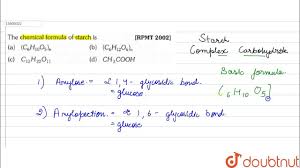 The chemical formula of starch is [RPMT 2002]
(a) (C₆H₁₀O₅)ₙ (b) (C₆H₁₂O₆)ₙ
(c) C₁₂H₂₂O₁₁ (d) CH₃COOH
Starch
Complex Carbohydrate
Basic formula
(C₆H₁₀O₅)
1) Amylose = α 1,4- glycosidic bond.
= glucose
2) Amylopection = α 1,6- glycosidic bond.
= glucose
doubtnut